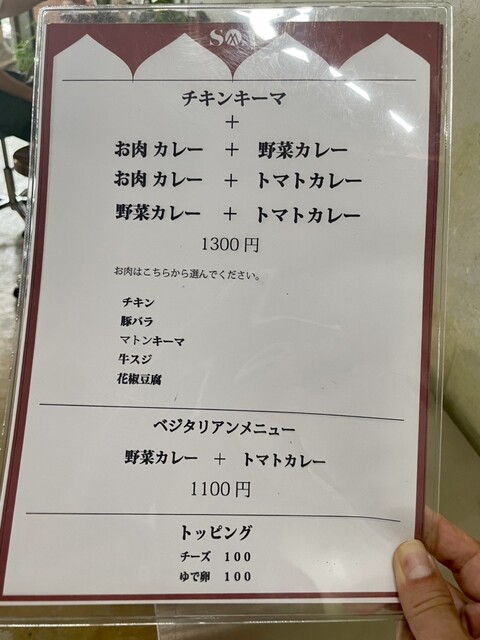 チキンキーマ
+
お肉 カレー + 野菜カレー
お肉 カレー + トマトカレー
野菜カレー + トマトカレー
1300 円
お肉はこちらから選んでください。
チキン
豚バラ
マトンキーマ
牛スジ
花椒豆腐
ベジタリアンメニュー
野菜カレー + トマトカレー
1100 円
トッピング
チーズ 100
ゆで卵 100